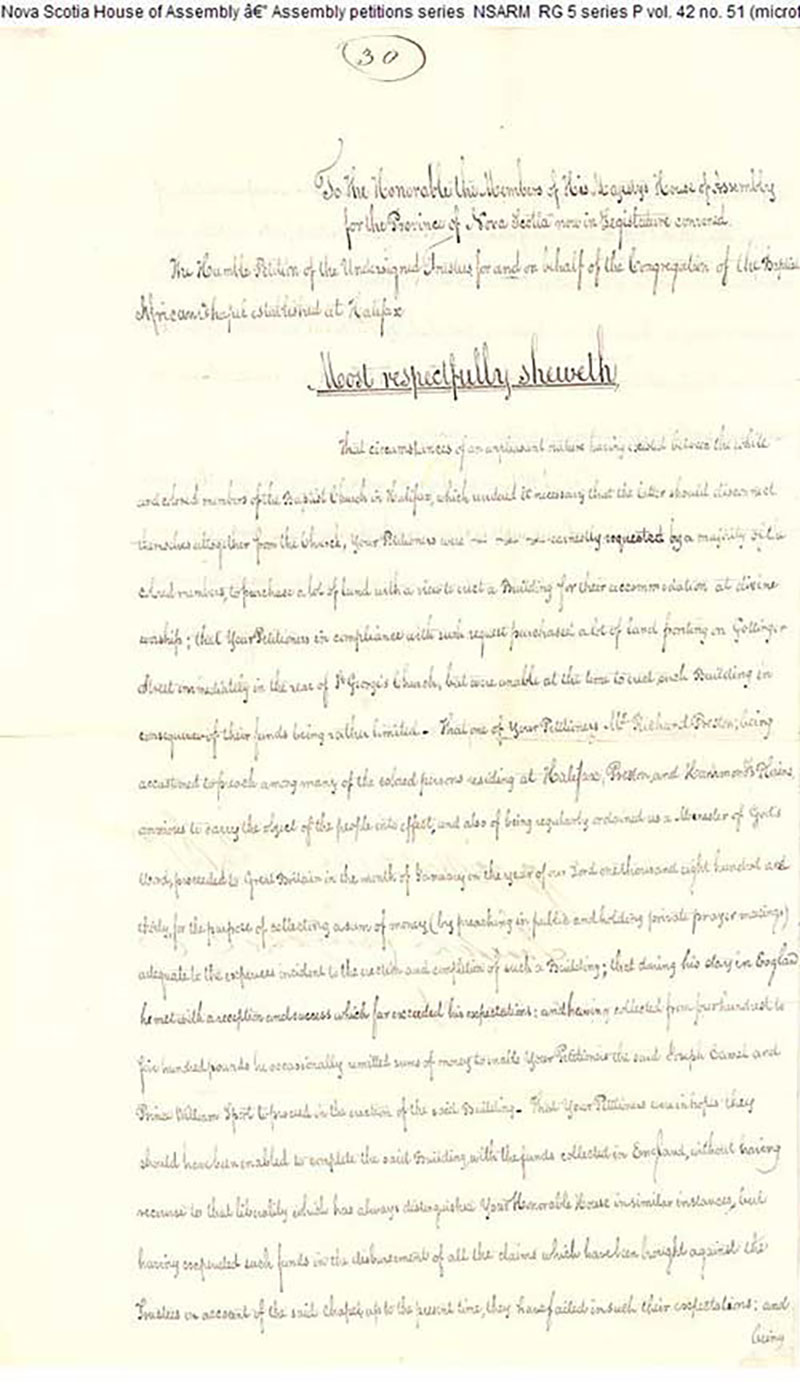 Nova Scotia House of Assembly â€" Assembly petitions series NSARM RG 5 series P vol. 42 no. 51 (microf
30
To the Honorable the Members of His Majestys House of Assembly
for the Province of Nova Scotia now in Legislature convened.
The Humble Petition of the Undersigned Trustees for and on behalf of the Congregation of the Baptist
African Chapel established at Halifax
Most respectfully sheweth
That circumstances of an unpleasant nature having existed between the white
and colored members of the Baptist Church in Halifax, which rendered it necessary that the latter should disconnect
themselves altogether from the Church, Your Petitioners were earnestly requested by a majority of the
colored members, to purchase a lot of land with a view to erect a Building for their accommodation at divine
worship; that Your Petitioners in compliance with such request purchased a lot of land fronting on Gottingen
Street immediately in the rear of St Georges Church, but were unable at the time to erect such Building in
consequence of their funds being rather limited. That one of Your Petitioners Mr Richard Preston, being
accustomed to preach among many of the colored persons residing at Halifax, Preston, and Hammonds Plains,
anxious to carry the object of the people into effect, and also of being regularly ordained as a Minister of God's
Word, proceeded to Great Britain in the month of January in the year of our Lord one thousand eight hundred and
thirty, for the purpose of collecting a sum of money (by preaching in public and holding private prayer meetings)
adequate to the expenses incident to the erection and completion of such a Building; that during his stay in England
he met with a reception and success which far exceeded his expectations: and having collected from four hundred to
five hundred pounds he occasionally remitted sums of money to enable Your Petitioners the said Joseph and
Prince William Sport to proceed in the erection of the said Building. That Your Petitioners were in hopes they
should have been enabled to complete the said Building, with the funds collected in England, without having
recourse to that liberality which has always distinguished Your Honorable House in similar instances, but
having expended such funds in the disbursement of all the claims which have been brought against the
Trustees on account of the said chapel up to the present time, they have failed in such their expectations; and
being